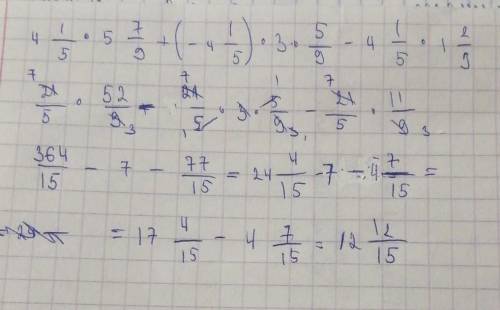 4 1/5 · 5 7/9 + (-4 1/5) · 3 · 5/9 - 4 1/5 · 1 2/9
7 21/5 · 52/9 3 - 7 21/5 1 · 3 · 1 5/9 3 - 7 21/5 · 11/9 3
364/15 - 7 - 77/15 = 24 4/15 - 7 - 4 7/15 =
= 17 4/15 - 4 7/15 = 12 12/15